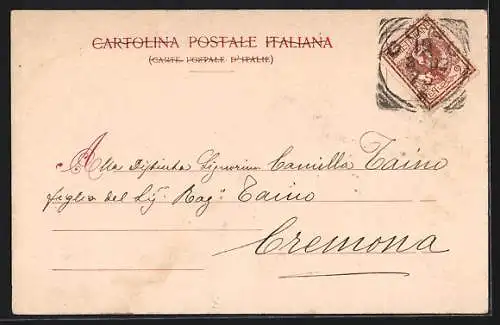 CARTOLINA POSTALE ITALIANA
(CARTE POSTALE D'ITALIE)
Alla Distinta Signorina Camilla Taino
figlia del Sig. Rag.e Taino
Cremona